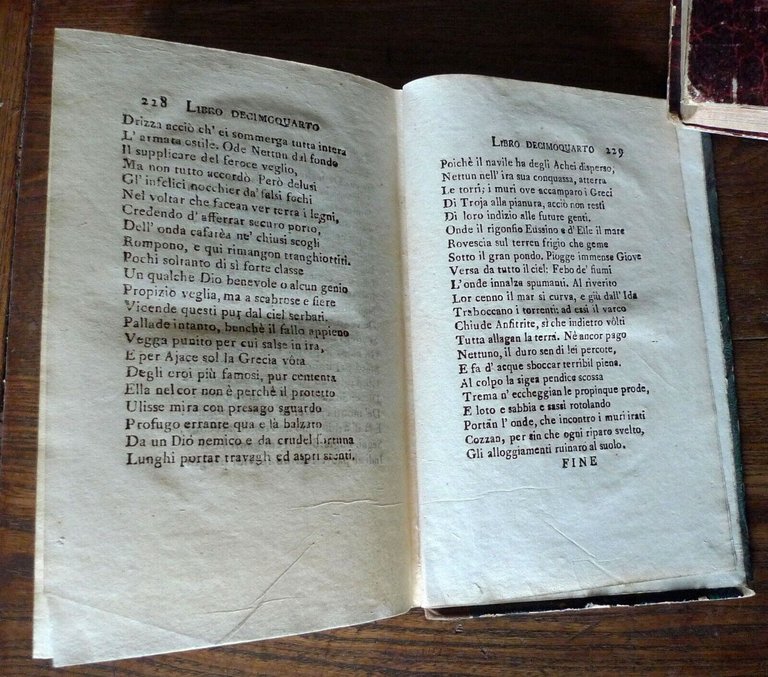 228 LIBRO DECIMOQUARTO
Drizza acciò ch' ei sommerga tutta intera
L' armata ostile. Ode Nettun dal fondo
Il supplicare del feroce veglio,
Ma non tutto accordò. Però delusi
Gl' infelici nocchier da' falsi fochi
Nel voltar che facean ver terra i legni,
Credendo d' afferrar securo porto,
Dell' onda cafarèa ne' chiusi scogli
Rompono, e qui rimangon tranghiottiti.
Pochi soltanto di sì forte classe
Un qualche Dio benevole o alcun genio
Propizio veglia, ma a scabrose e fiere
Vicende questi pur dal ciel serbati.
Pallade intanto, benchè il fallo appieno
Vegga punito per cui salse in ira,
E per Ajace sol la Grecia vota
Degli eroi più famosi, pur contenta
Ella nel cor non è perchè il protetto
Ulisse mira con presago sguardo
Profugo errante qua e là balzato
Da un Dio nemico e da crudel fortuna
Lunghi portar travagli ed aspri stenti.
LIBRO DECIMOQUARTO 229
Poichè il navile ha degli Achei disperso,
Nettun nell' ira sua conquassa, atterra
Le torri; i muri ove accamparo i Greci
Di Troja alla pianura, acciò non resti
Di loro indizio alle future genti.
Onde il rigonfio Eussino e d' Elle il mare
Rovescia sul terren frigio che geme
Sotto il gran pondo. Piogge immense Giove
Versa da tutto il ciel: Febo de' fiumi
L' onde innalza spumanti. Al riverito
Lor cenno il mar si curva, e giù dall' Ida
Traboccano i torrenti: ad essi il varco
Chiude Anfitrite, sì che indietro vòlti
Tutta allagan la terra. Nè ancor pago
Nettuno, il duro sen di lei percote,
E fa d' acque sboccar terribil piena.
Al colpo la sigea pendica scossa
Trema n' eccheggian le propinque prode,
E loto e sabbia e sassi rotolando
Portan l' onde, che incontro i muri irati
Cozzan, per sin che ogni riparo svelto,
Gli alloggiamenti ruinaro al suolo.
FINE